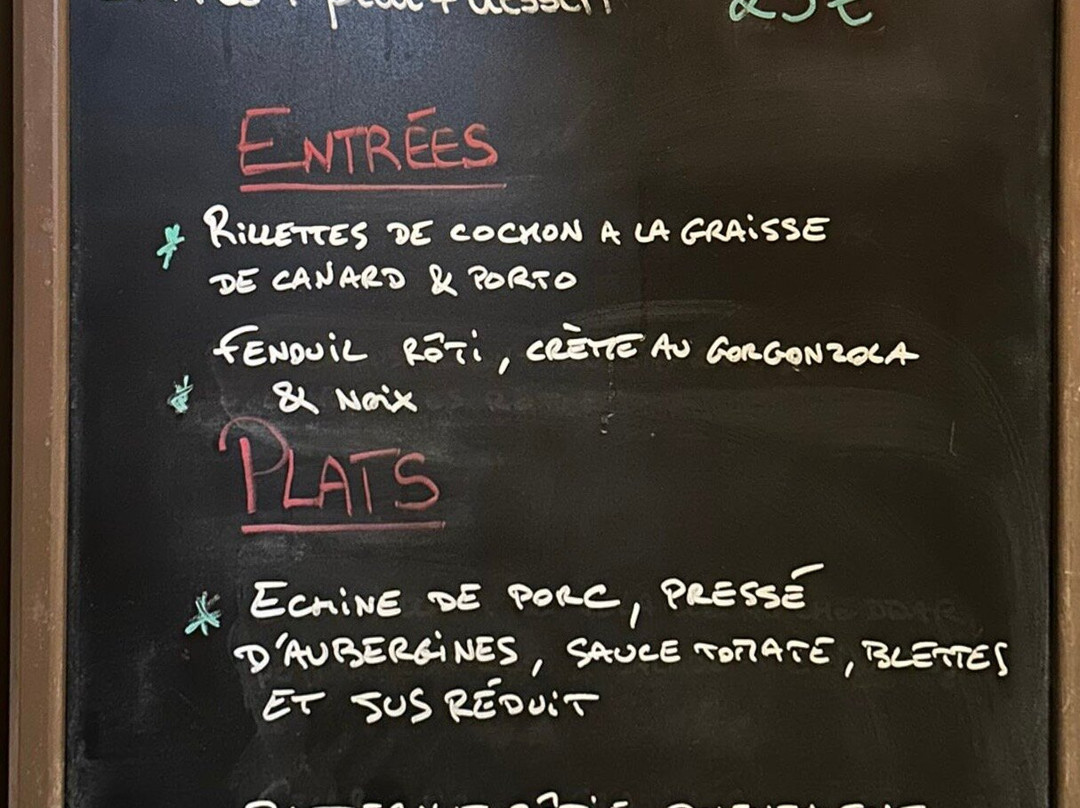 plat + dessert 25€
ENTRÉES
* RILLETTES DE COCHON A LA GRAISSE
DE CANARD & PORTO
FENOUIL RÔTI, CRÈME AU GORGONZOLA
* & NOIX
PLATS
* ECHINE DE PORC, PRESSÉ
D'AUBERGINES, SAUCE TOMATE, BLETTES
ET JUS RÉDUIT